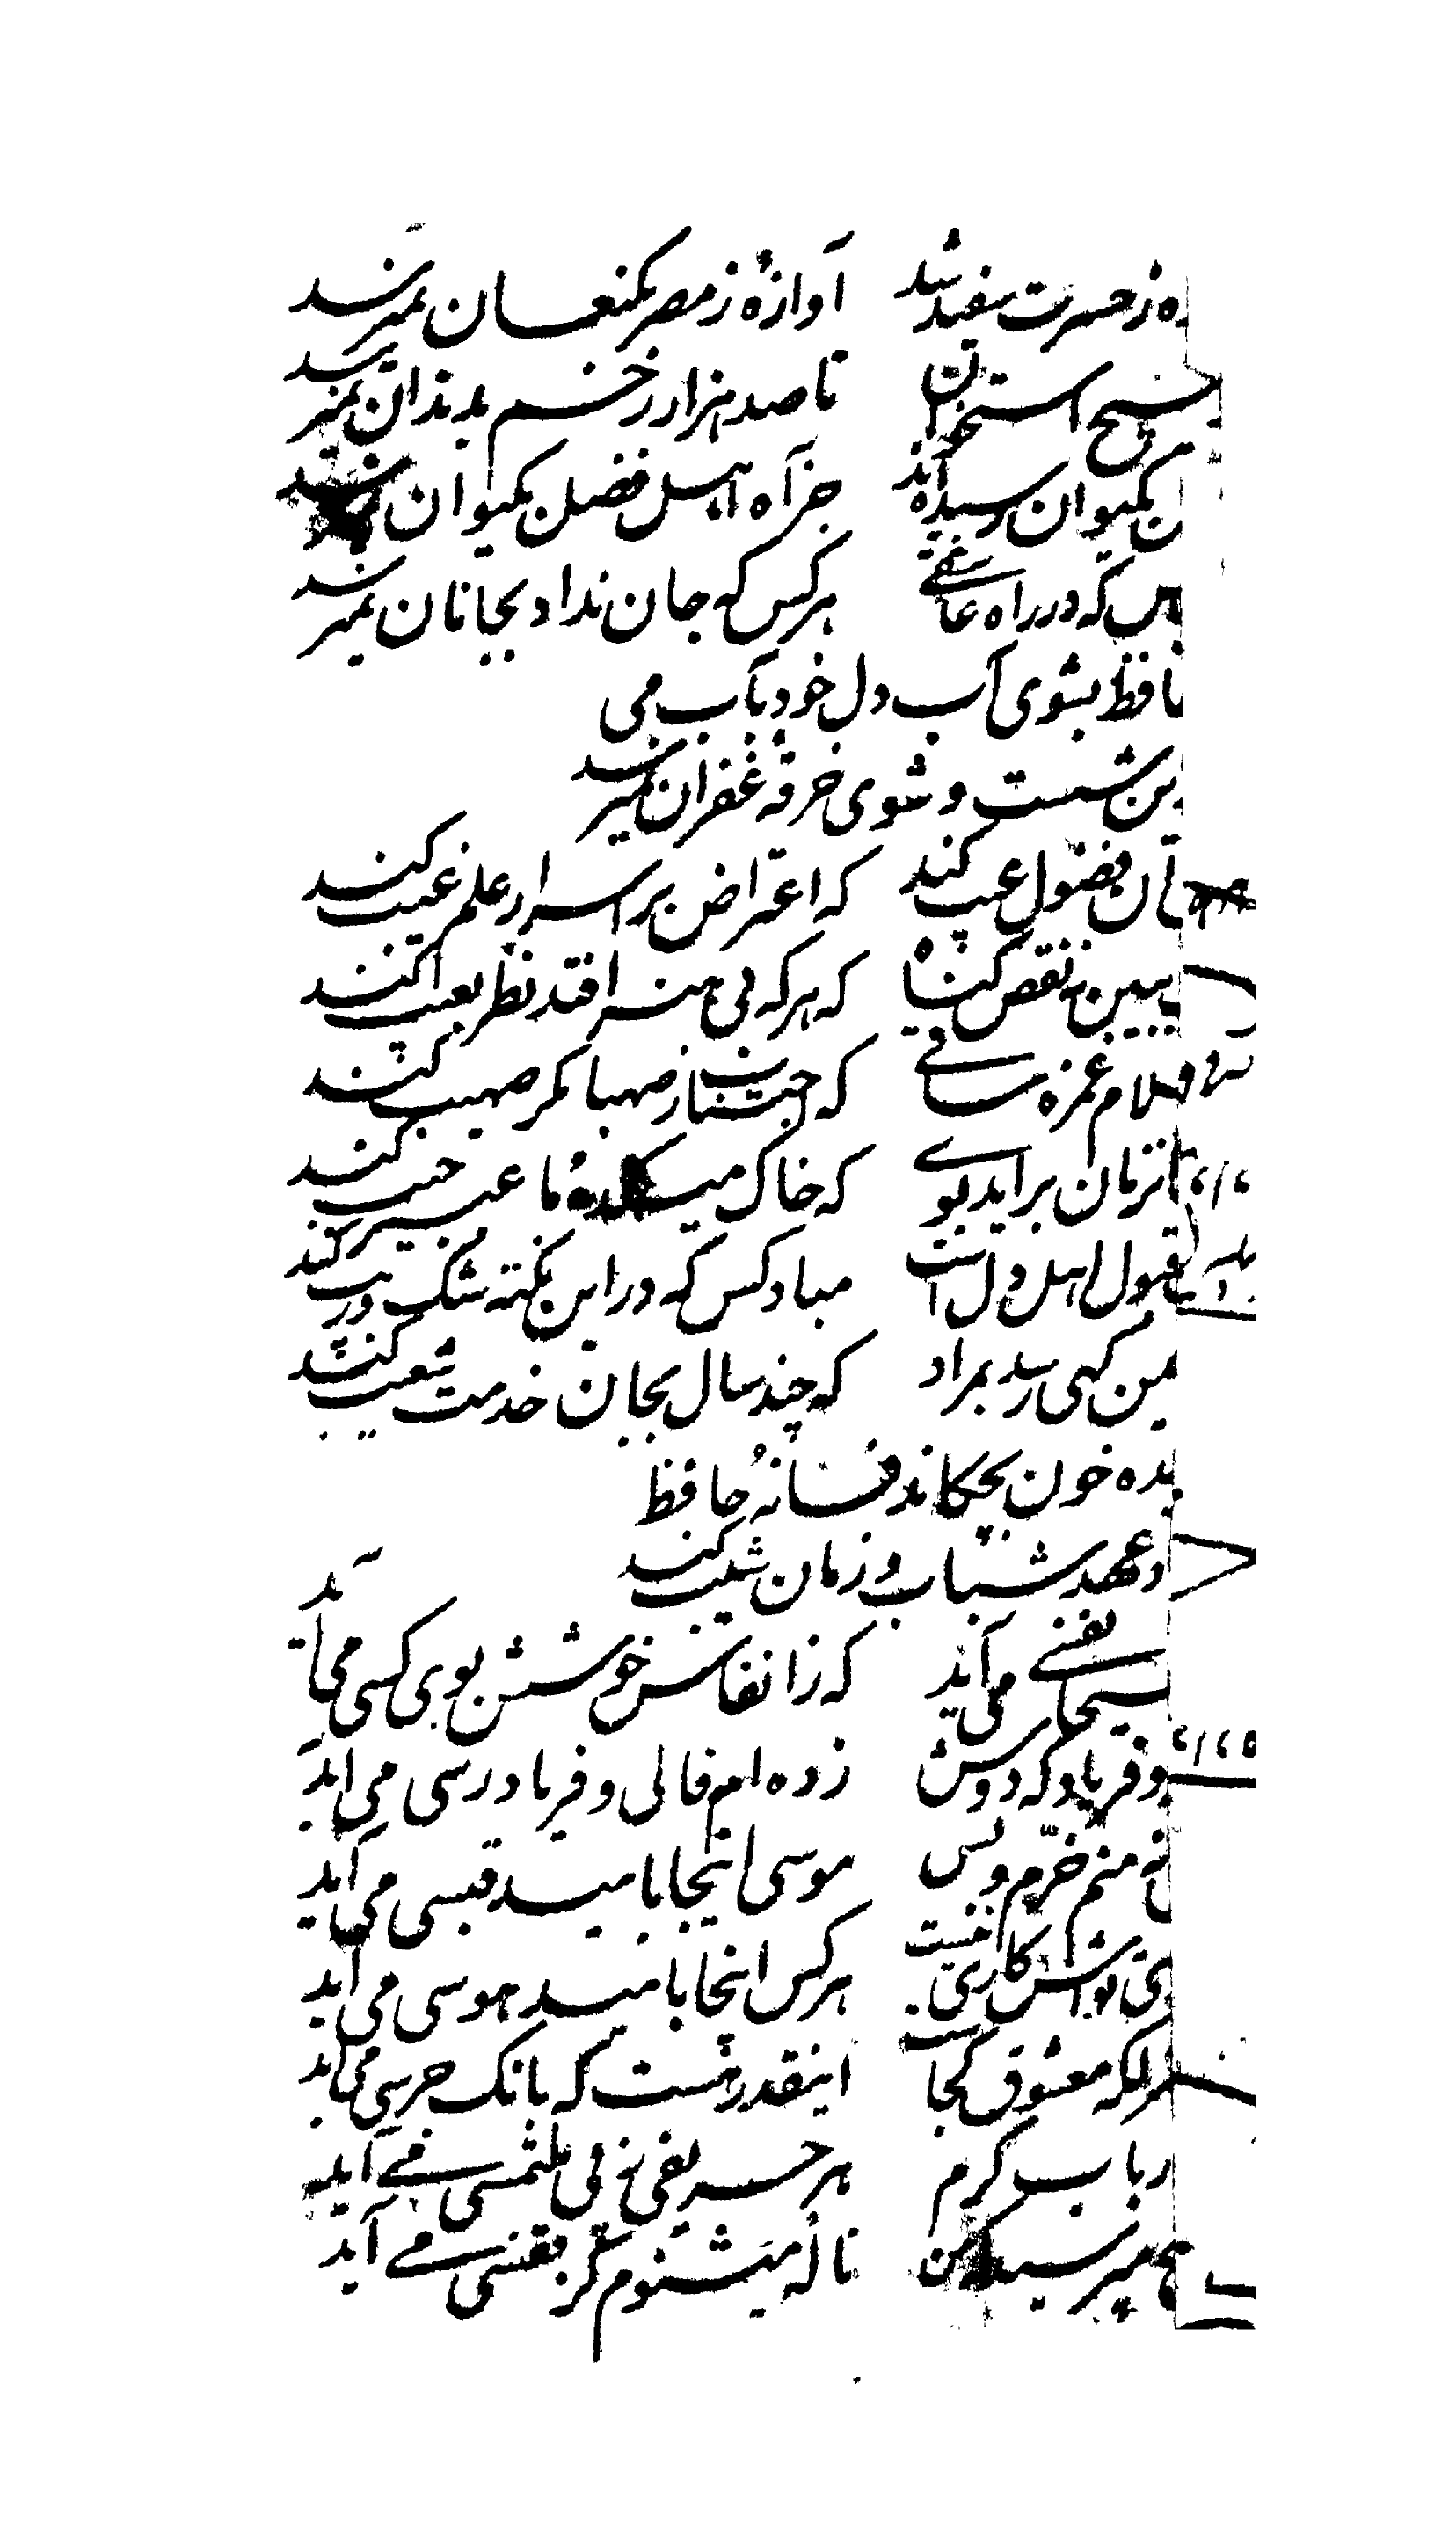 ه ز حسرت سفید شد آوازهٔ ز مصر بکنعان نمیرسد
هیچ استخوان تا صد هزار زخم بدندان نمیرسد
ن بکیوان رسیده‌اند جز آه اهل فضل بکیوان نمیرسد
س که در راه عاشقی هرکس که جان نداد بجانان نمیرسد
حافظ بشوی آب دل خود بآب می
ین شست و شوی خرقه غفران نمیرسد
آن فضول عیب کند که اعتراض بر اسرار علم غیب کند
ببین نه نقص گناه که هرکه بی هنر افتد نظر بعیب کند
سلام غمزه ساقی که اجتناب ز صهبا مگر صهیب کند
زمان برآید بوی که خاک میکدهٔ ما عبیر جیب کند
قبول اهل دل است مباد کس که در این نکته شک و ریب کند
یمن گهی رسد بمراد که چند سال بجان خدمت شعیب کند
یده خون بچکاند فسانهٔ حافظ
د عهد شباب و زمان شیب کند
مسیحا نفسی می آید که ز انفاس خوشش بوی کسی می آید
و فریاد که دوش زده‌ام فالی و فریادرسی می آید
نه منم خرم و بس موسی اینجا بامید قبسی می آید
تواش کاری نیست هرکس اینجا بامید هوسی می آید
که معشوق کجاست اینقدر هست که بانک جرسی می آید
رباب کرم هر حریفی ز پی ملتمسی می آید
مپرسید که من ناله میشنوم کز قفسی می آید